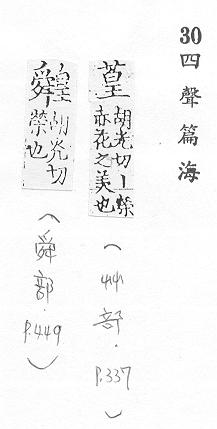 30 四聲篇海
葟 胡光切丨榮
亦花之美也
(艸部.P.337)
胡光切
榮也
(舜部.P.449)